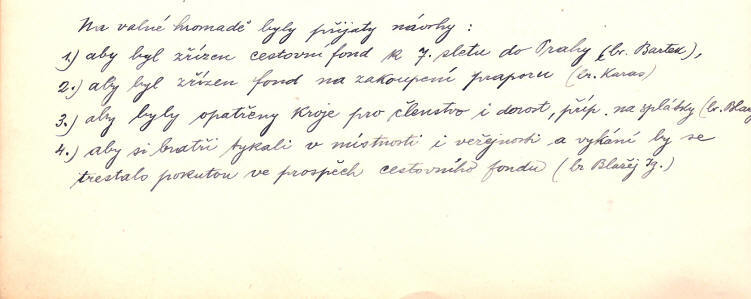 Na valné hromadě byly přijaty návrhy :
1.) aby byl zřízen cestovní fond k 7. sletu do Prahy (br. Bartek),
2.) aby byl zřízen fond na zakoupení praporu (br. Karas)
3.) aby byly opatřeny kroje pro členstvo i dorost, příp. na splátky (br. Blaž
4.) aby si bratři tykali v místnosti i veřejnosti a vykání by se
trestalo pokutou ve prospěch cestovního fondu (br Blažej Ig.)